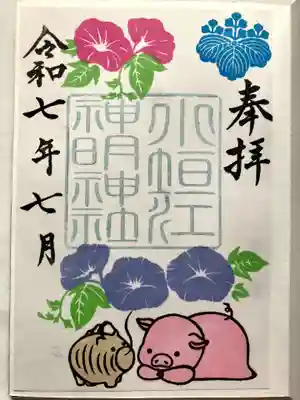 奉拝
小垣江
神明神社
令和七年七月